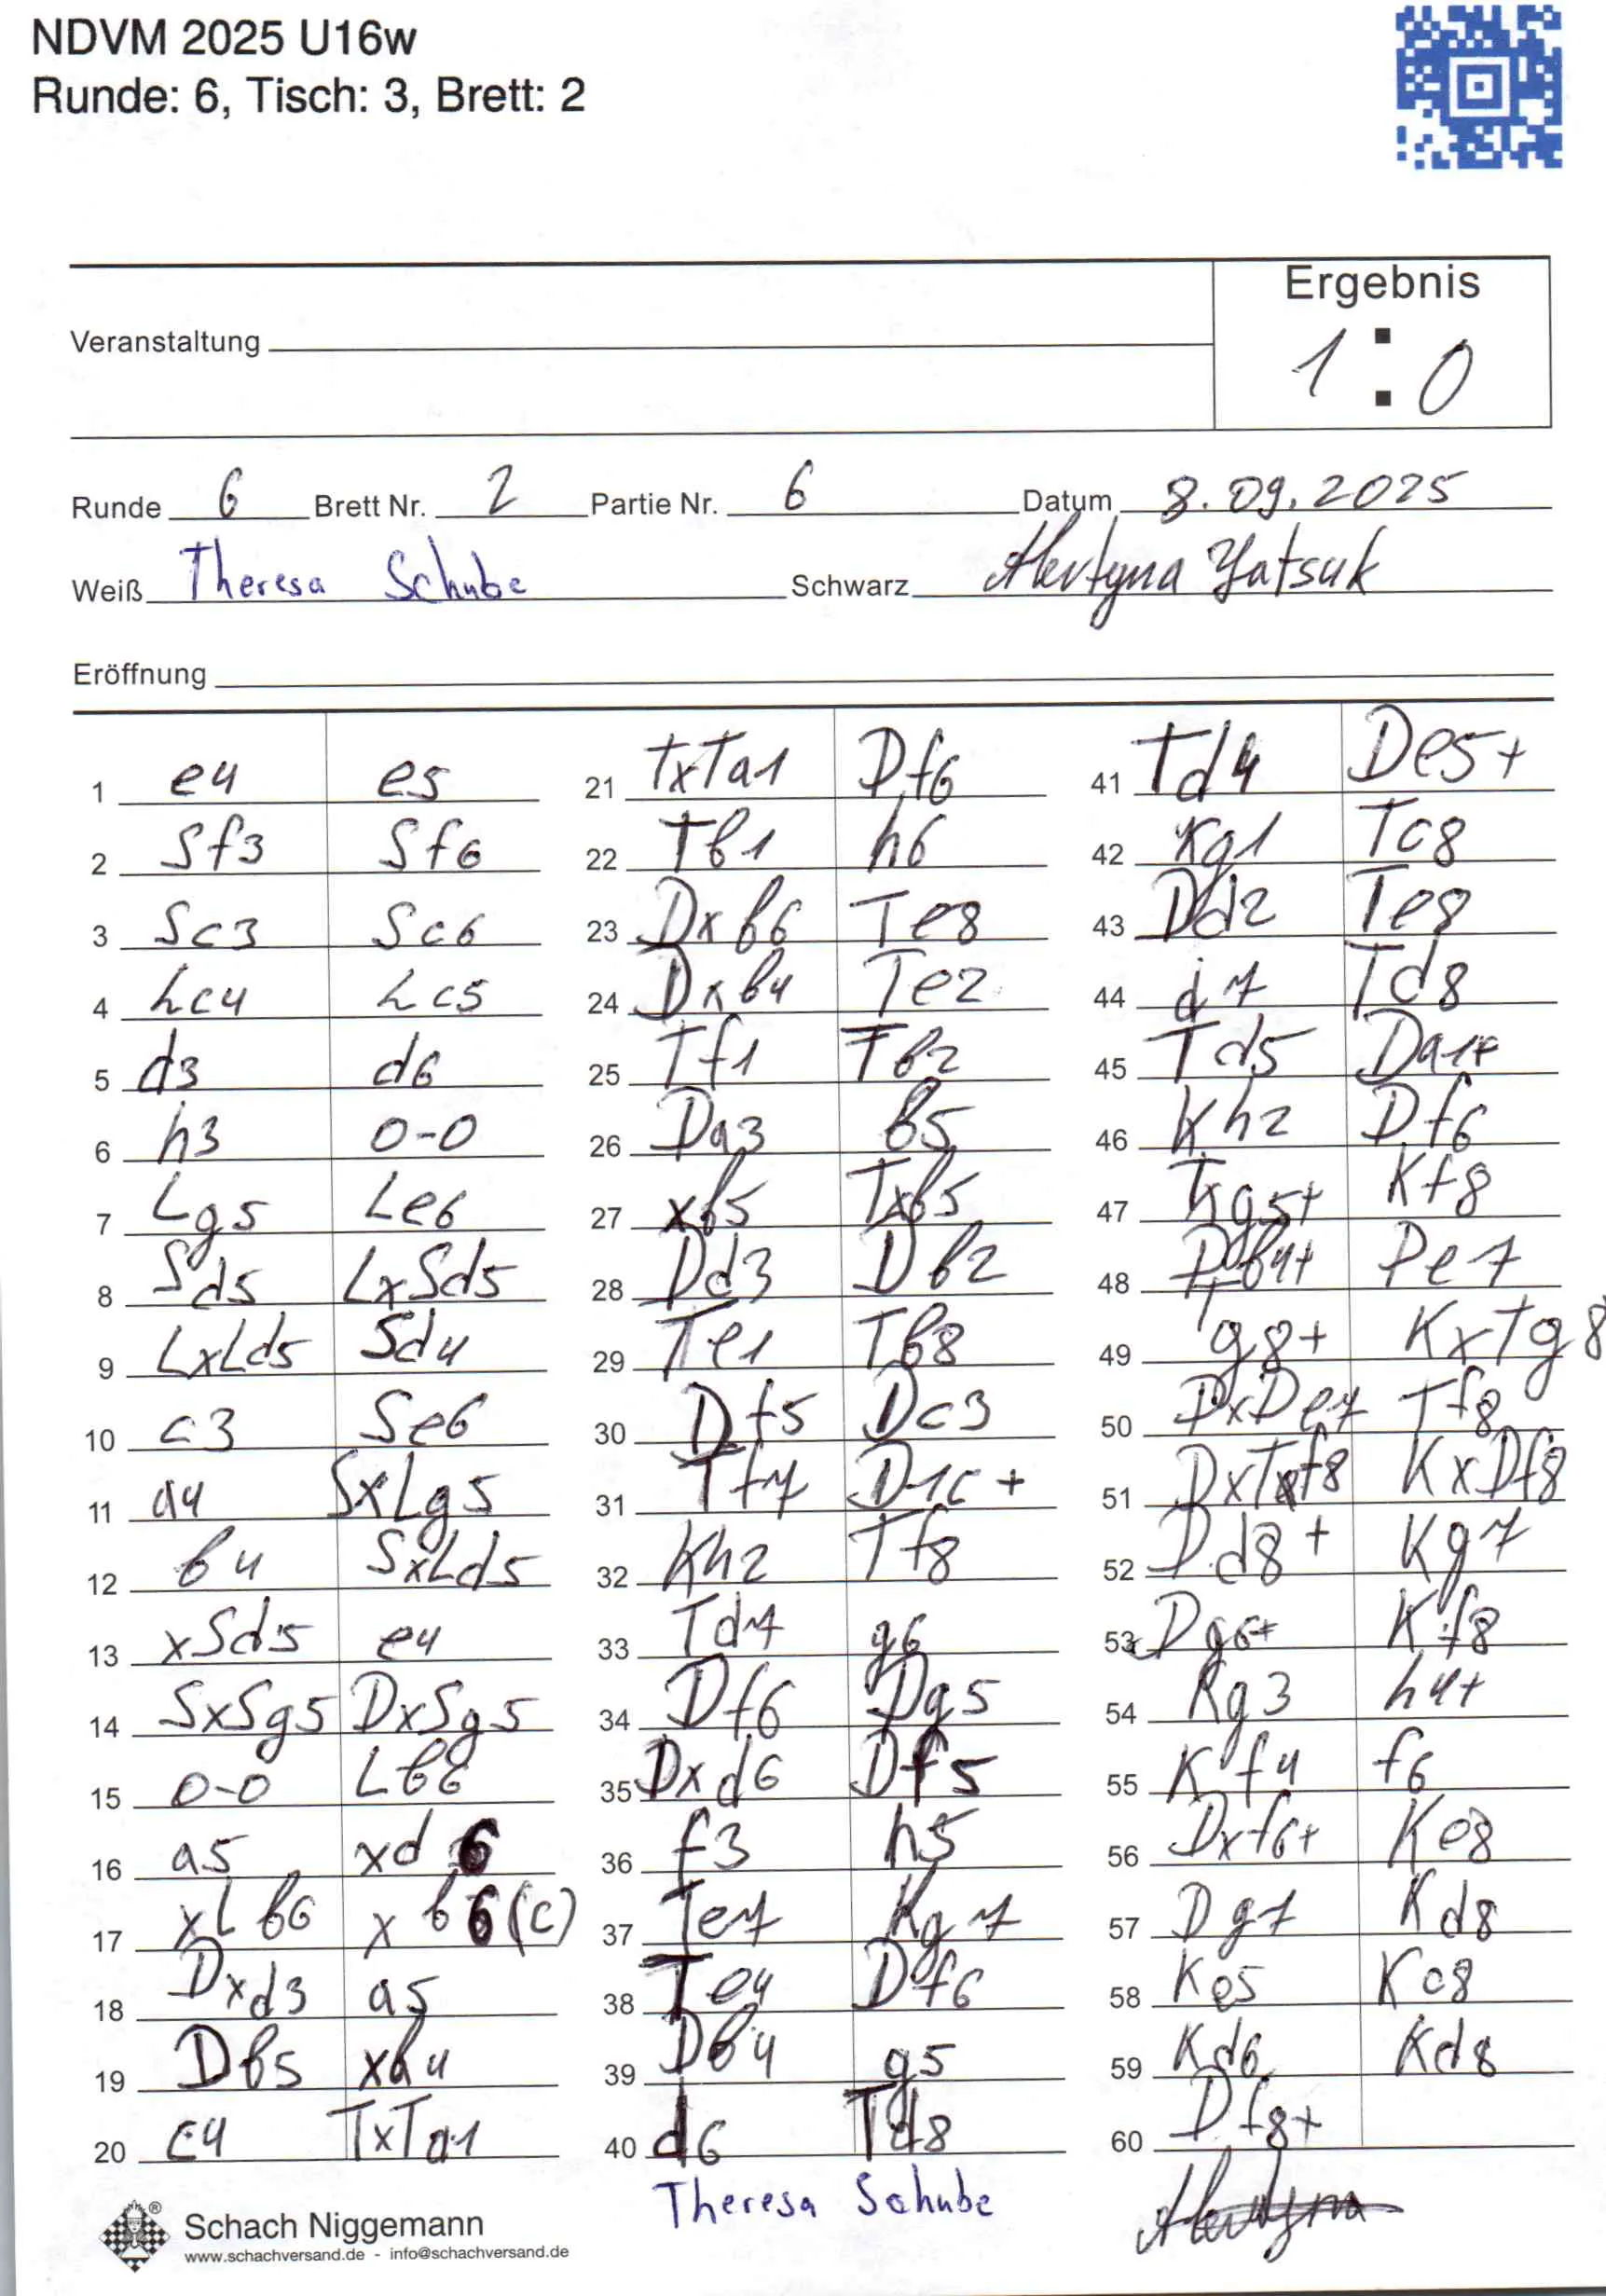 NDVM 2025 U16w
Runde: 6, Tisch: 3, Brett: 2
Ergebnis
Veranstaltung
1 : 0
Runde 6 Brett Nr. 2 Partie Nr. 6 Datum 8.09.2025
Weiß Theresa Schube Schwarz Yatsuk
Eröffnung
1 e4 e5 21 TxTa1 Df6 41 Td4 De5+
2 Sf3 Sf6 22 Tb1 h6 42 Kg1 Tc8
3 Sc3 Sc6 23 Dxb6 Te8 43 Dd2 Te8
4 Lc4 Lc5 24 Dxb4 Te2 44 d7 Td8
5 d3 d6 25 Tf1 Tb2 45 Td5 Da1+
6 h3 0-0 26 Da3 b5 46 Kh2 Df6
7 Lg5 Le6 27 xb5 Txb5 47 Txg5+ Kf8
8 Sd5 LxSd5 28 Dd3 Db2 48 Db4+ De7
9 LxLd5 Sd4 29 Te1 Tb8 49 Tg8+ KxTg8
10 c3 Se6 30 Df5 Dc3 50 DxDe7 Tf8
11 a4 SxLg5 31 Tf7 D1c+ 51 DxTf8 KxDf8
12 b4 SxLd5 32 Kh2 Tf8 52 Dd8+ Kg7
13 xSd5 e4 33 Td7 g6 53 Dg6+ Kf8
14 SxSg5 DxSg5 34 Df6 Dg5 54 Kg3 h4+
15 0-0 Lb6 35 Dxd6 Df5 55 Kf4 f6
16 a5 xd6 36 f3 h5 56 Dxf6+ Ke8
17 xLb6 xb6(c) 37 Te7 Kg7 57 Dg7 Kd8
18 Dxd3 a5 38 Te4 Df6 58 Ke5 Kc8
19 Db5 xb4 39 Db4 g5 59 Kd6 Kd8
20 c4 TxTa1 40 d6 Td8 60 Df8+
Theresa Schube
®
Schach Niggemann
www.schachversand.de - info@schachversand.de